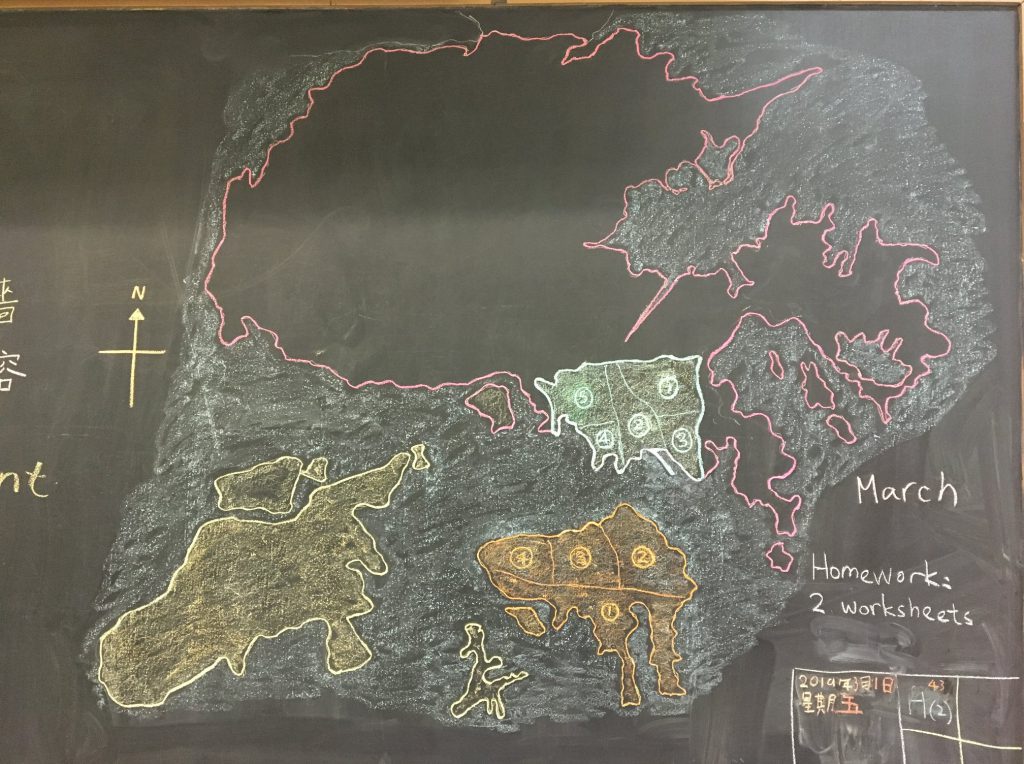 N
容
nt
⑤ ①
④ ② ③
④ ③ ②
①
March
Homework:
2 worksheets
2019年3月1日
星期五
43
H(2)